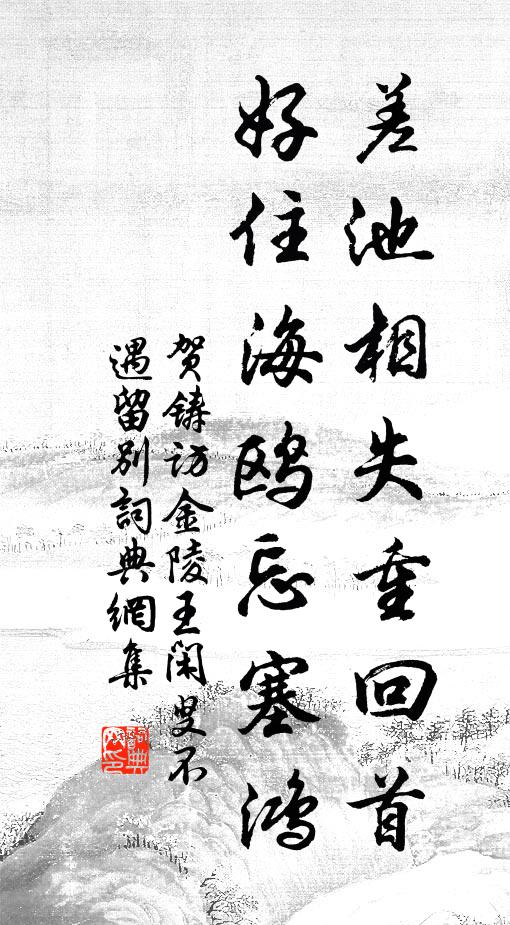 差池相失重回首
好住海鸥忘塞鴻
贺鑄访金陵王闲叟不
遇留别詞典網集